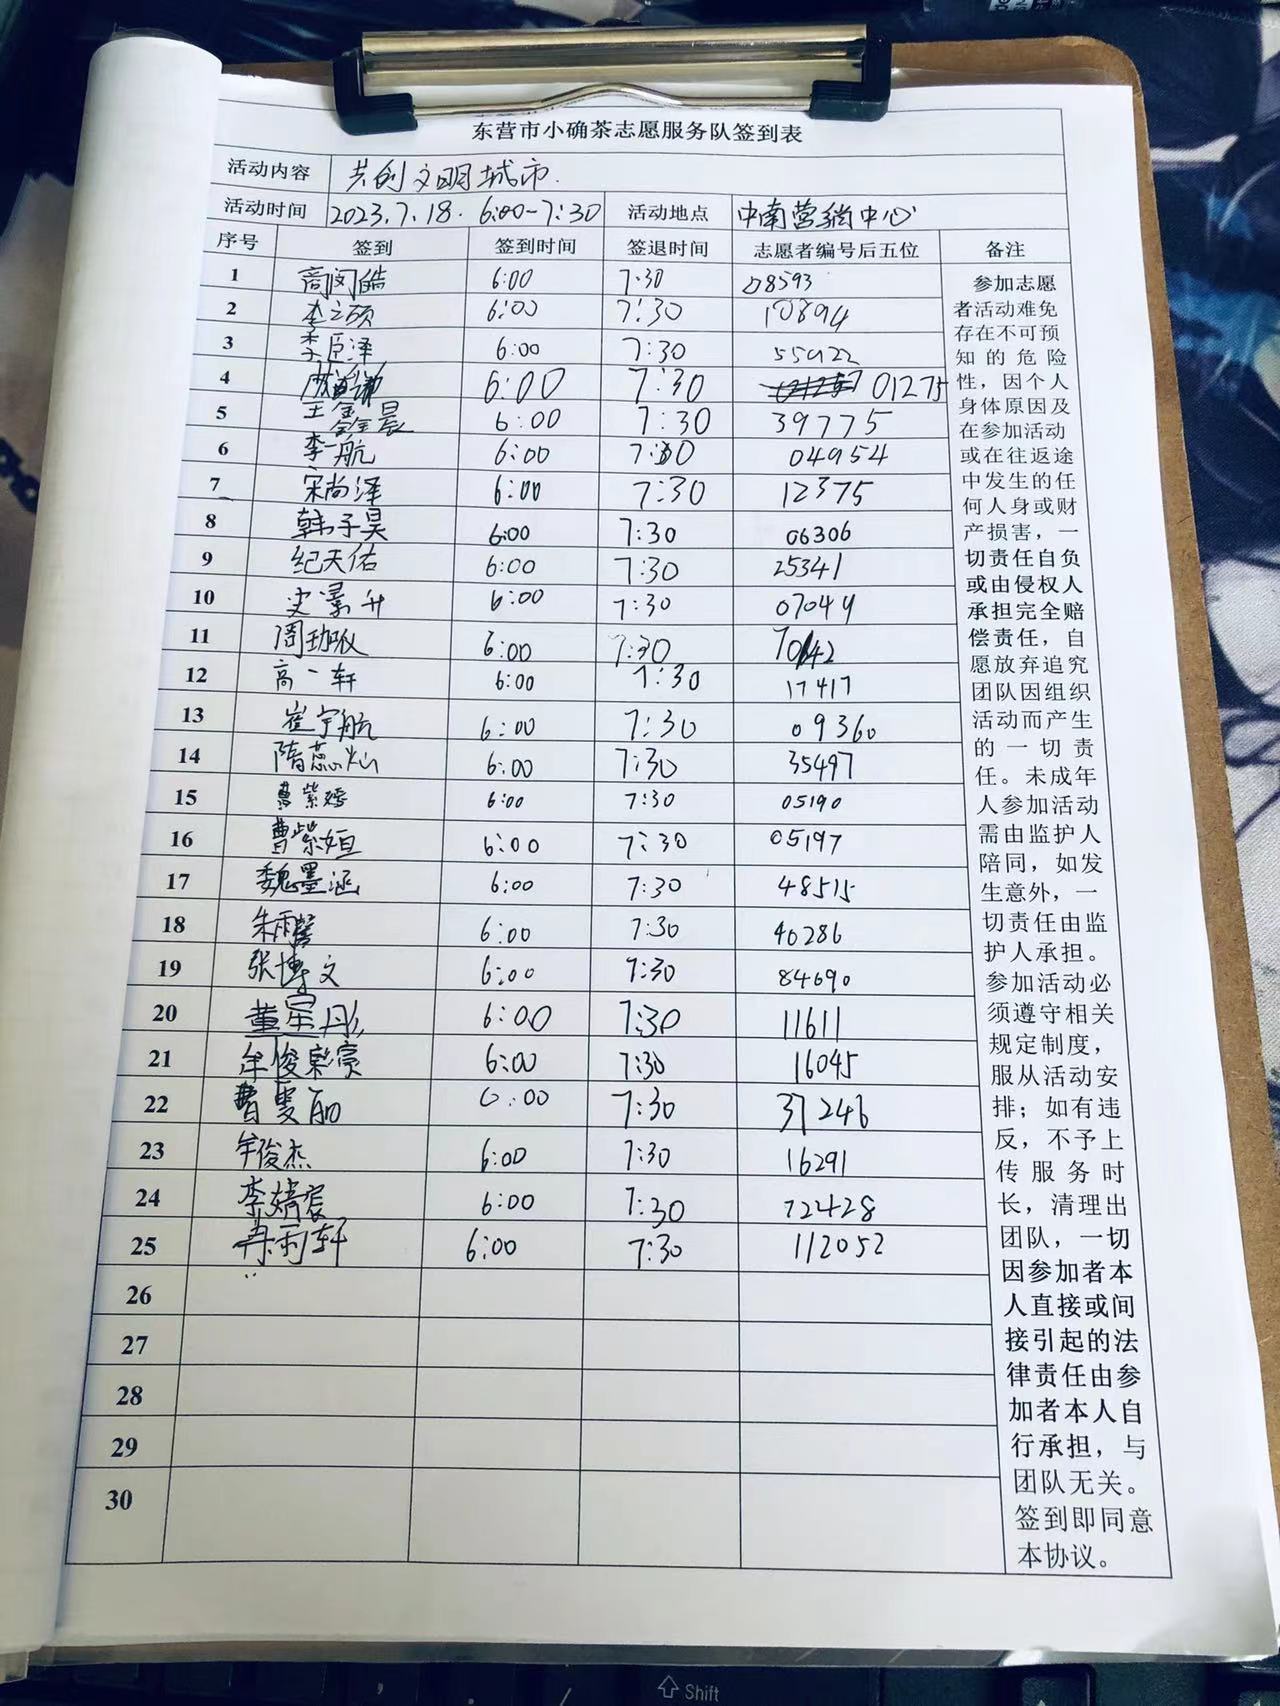 东营市小确茶志愿服务队签到表
活动内容 共创文明城市.
活动时间 2023.7.18. 6:00-7:30 活动地点 中南营销中心
序号 签到 签到时间 签退时间 志愿者编号后五位 备注
1 商闵皓 6:00 7:30 08593
2 李之硕 6:00 7:30 10894
3 李臣泽 6:00 7:30 55922
4 6:00 7:30 01275
5 王鑫晨 6:00 7:30 39775
6 李一航 6:00 7:30 04954
7 宋尚泽 6:00 7:30 12375
8 韩子昊 6:00 7:30 06306
9 纪天佑 6:00 7:30 25341
10 史景升 6:00 7:30 07044
11 周 6:00 7:30 70142
12 高一轩 6:00 7:30 17417
13 崔宇航 6:00 7:30 09360
14 隋蕊灿 6:00 7:30 35497
15 曹紫 6:00 7:30 05190
16 曹紫姮 6:00 7:30 05197
17 魏墨涵 6:00 7:30 48515
18 朱雨馨 6:00 7:30 40286
19 张博文 6:00 7:30 84690
20 董星彤 6:00 7:30 11611
21 牟俊豪 6:00 7:30 16045
22 曹 6:00 7:30 37246
23 牟俊杰 6:00 7:30 16291
24 李婧宸 6:00 7:30 72428
25 冉雨轩 6:00 7:30 112052
26
27
28
29
30
参加志愿
者活动难免
存在不可预
知的危险
性，因个人
身体原因及
在参加活动
或在往返途
中发生的任
何人身或财
产损害，一
切责任自负
或由侵权人
承担完全赔
偿责任，自
愿放弃追究
团队因组织
活动而产生
的一切责
任。未成年
人参加活动
需由监护人
陪同，如发
生意外，一
切责任由监
护人承担。
参加活动必
须遵守相关
规定制度，
服从活动安
排；如有违
反，不予上
传服务时
长，清理出
团队，一切
因参加者本
人直接或间
接引起的法
律责任由参
加者本人自
行承担，与
团队无关。
签到即同意
本协议。
Shift